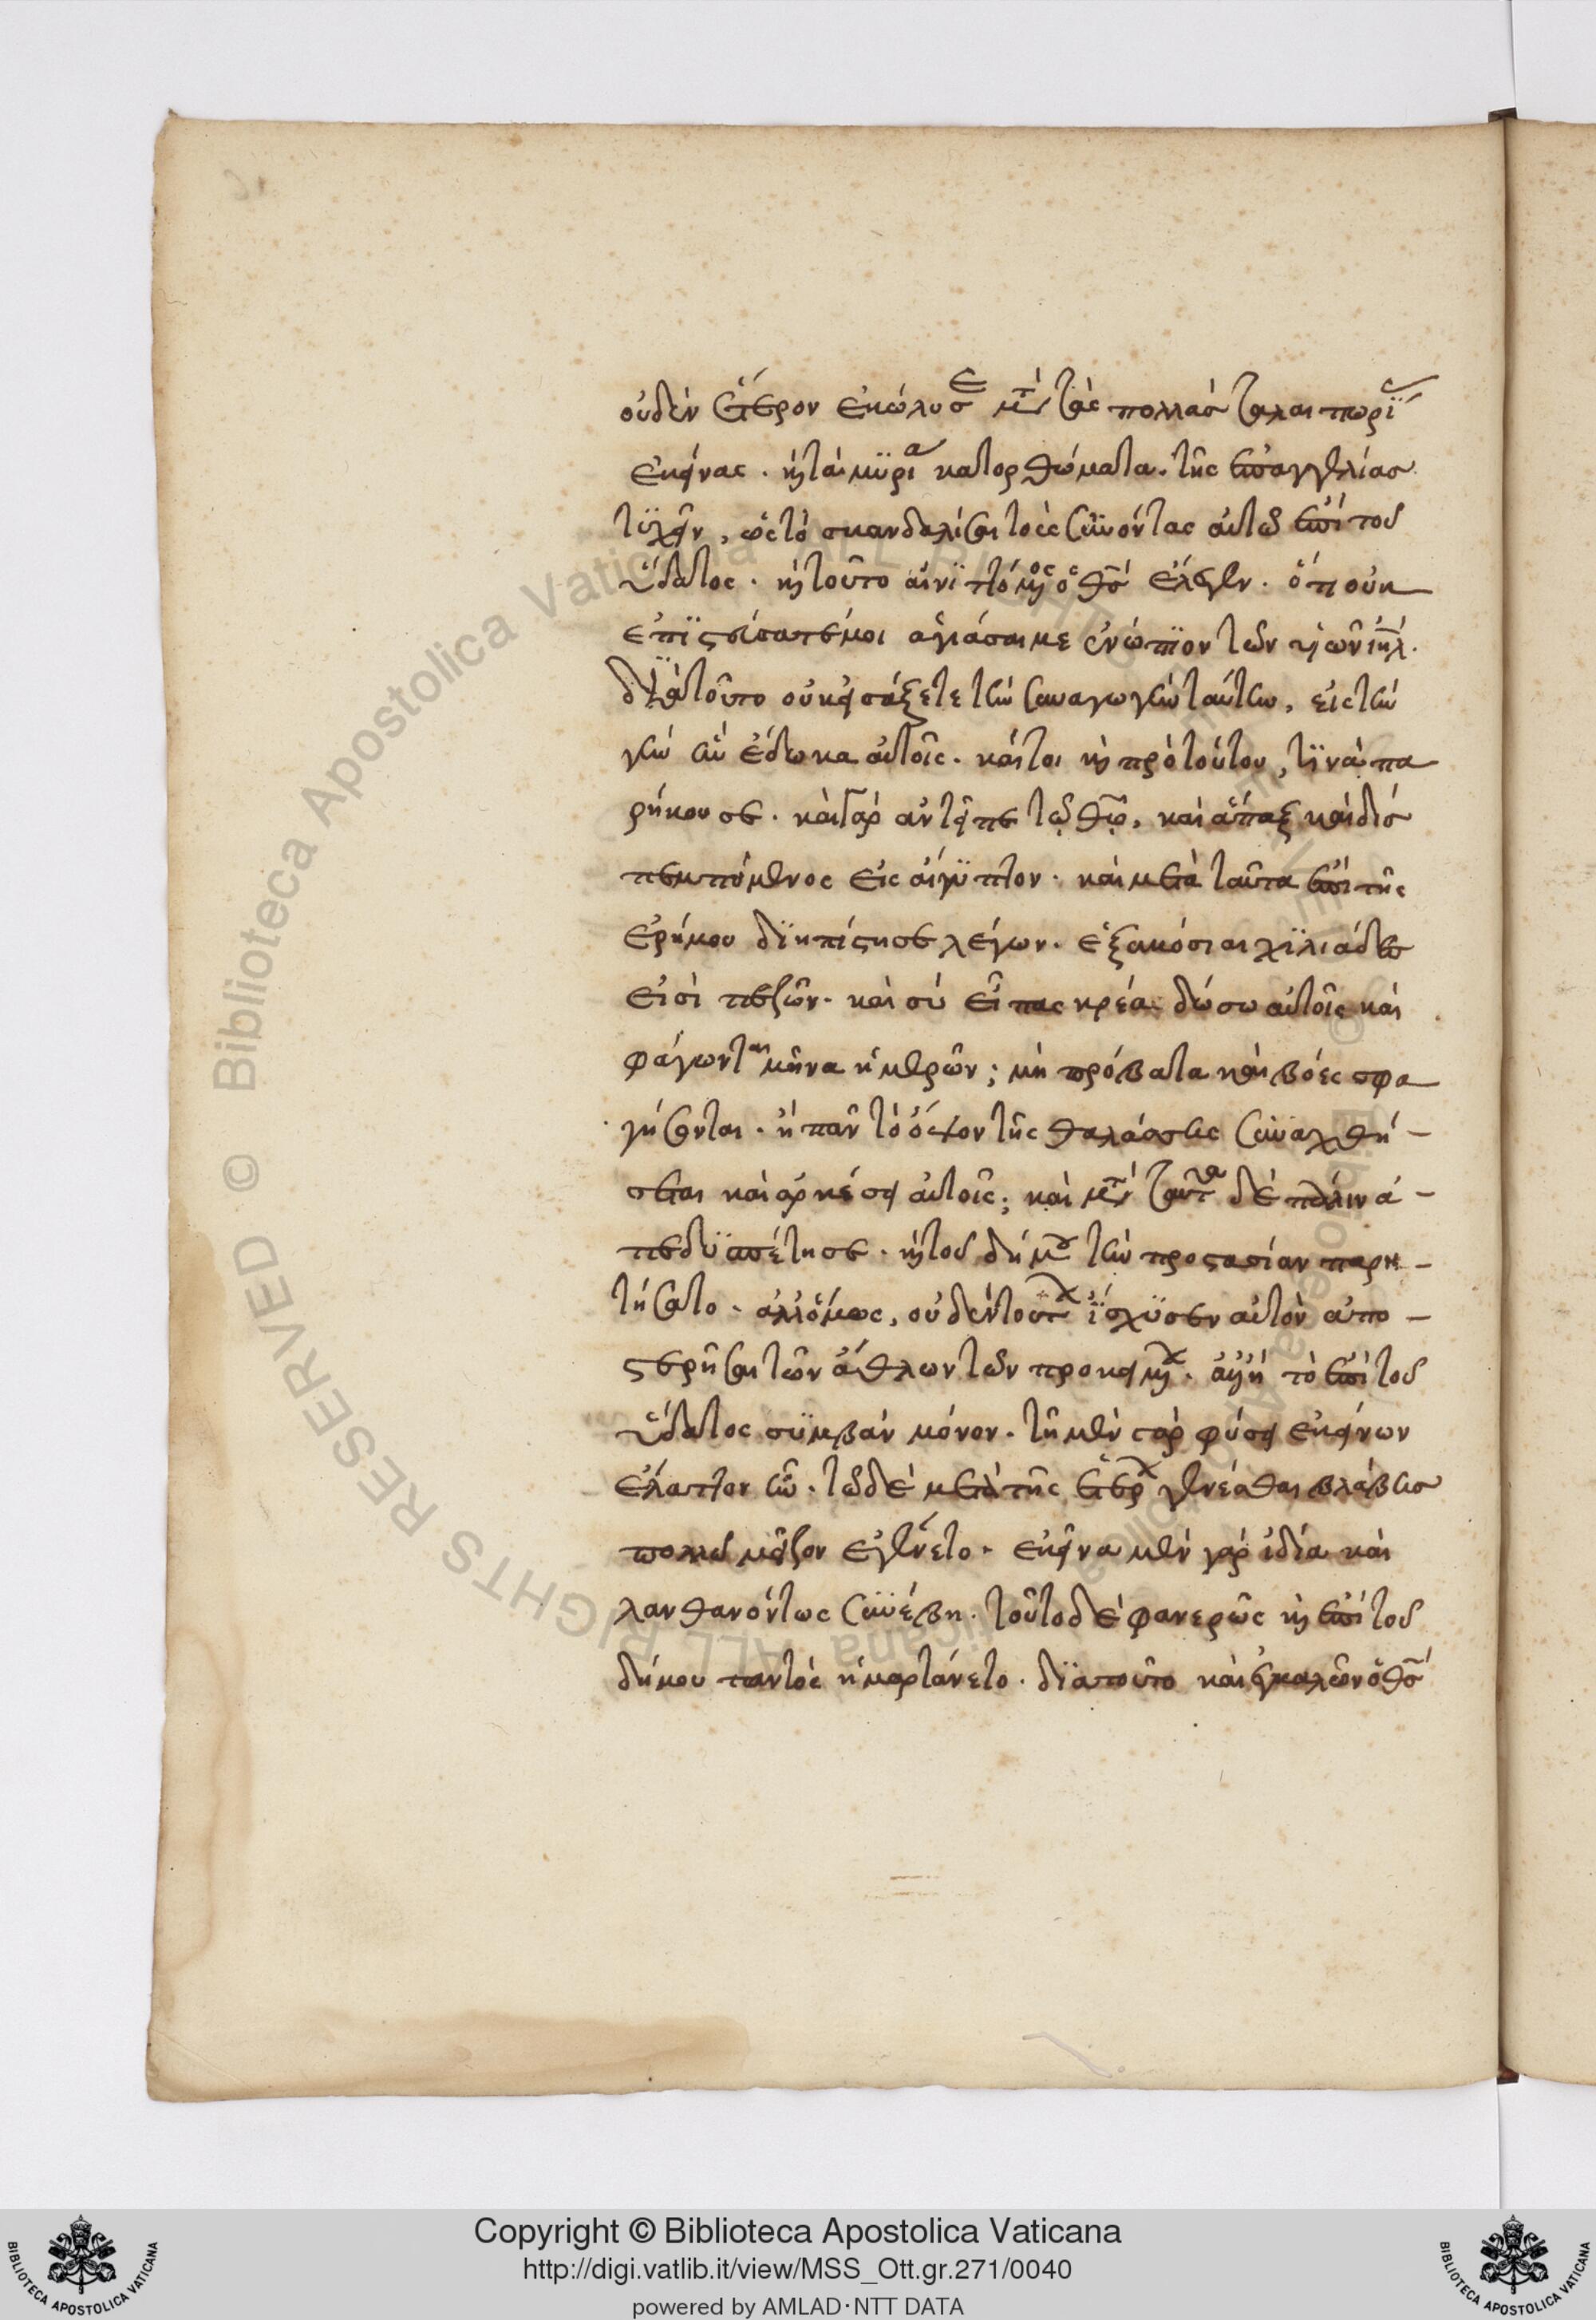 οὐδὲν ἕτερον ἐκώλυσε μετὰ τὰς πολλὰς ταλαιπωρίας
ἐκείνας. καὶ τὰ μϋρία κατορθώματα. τῆς ἐπαγγελίας
τϋχεῖν, ὡς τὸ σκανδαλίσαι τοὺς συνόντας αὐτῶ ἐπὶ τοῦ
ὕδατος. καὶ τοῦτο αἰνϊττόμενος ὁ θσ ἔλεγεν. ὅτι οὐκ
ἐπϊστεύσατέ μοι ἁγιάσαι με ἐνώπϊον τῶν υἱῶν ιηλ.
διὰ τοῦτο οὐκ εἰσάξετε τὴν συναγωγὴν ταύτην, εἰς τὴν
γῆν ἣν ἔδωκα αὐτοῖς. καίτοι καὶ πρὸ τούτου, τϊνὰ πα
ρήκουσε. καὶ γὰρ ἀντεῖπε τῷ θῷ, καὶ ἅπαξ καὶ δὶς
πεμπόμενος εἰς αἴγϋπτον. καὶ μετὰ ταῦτα ἐπὶ τῆς
ἐρήμου δϊηπίστησε λέγων. ἑξακόσιαι χϊλιάδες
εἰσὶ πεζῶν. καὶ σὺ εἶπας κρέα δώσω αὐτοῖς καὶ
φάγωνται μῆνα ἡμερῶν; μὴ πρόβατα καὶ βόες σφα
γήσονται. ἢ πᾶν τὸ ὄψον τῆς θαλάσσης συναχθή-
σεται καὶ ἀρκέσει αὐτοῖς; καὶ μετὰ ταῦτα δὲ πάλιν ἀ-
πεδυσπέτησε. καὶ τοῦ δήμου τὴν προστασίαν παρῃ-
τήσατο. ἀλλ' ὅμως, οὐδὲν τούτων ἴσχϋσεν αὐτὸν ἀπο-
στερῆσαι τῶν ἄθλων τῶν προκειμένων. ἀλλ' ἢ τὸ ἐπὶ τοῦ
ὕδατος συμβὰν μόνον. τῆ μὲν γὰρ φύσει ἐκείνων
ἔλαττον ἦν. τῶ δὲ μετὰ τῆς ἑτέρων γενέσθαι βλάβης
πολλῶ μεῖζον ἐγένετο. ἐκεῖνα μὲν γὰρ ἰδία καὶ
λανθανόντως συνέβη. τοῦτο δὲ φανερῶς καὶ ἐπὶ τοῦ
δήμου παντὸς ἡμαρτάνετο. δϊατοῦτο καὶ ἐγκαλῶν ὁ θσ
Copyright © Biblioteca Apostolica Vaticana
http://digi.vatlib.it/view/MSS_Ott.gr.271/0040
powered by AMLAD·NTT DATA